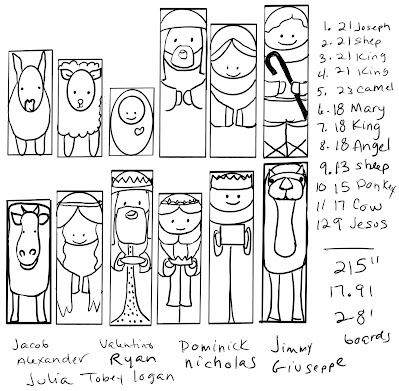 1. 21 Joseph
2. 21 Shep
3. 21 King
4. 21 King
5. 23 Camel
6. 18 Mary
7. 18 King
8. 18 Angel
9. 13 Sheep
10 15 Donkey
11 17 Cow
12 9 Jesus
215"
17.91
2-8'
boards
Jacob Valentino Dominick Jimmy
Alexander Ryan nicholas Giuseppe
Julia Tobey logan